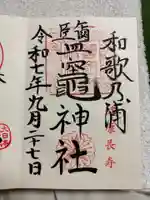 和歌乃浦
鹽竈神社
令和七年九月二十七日